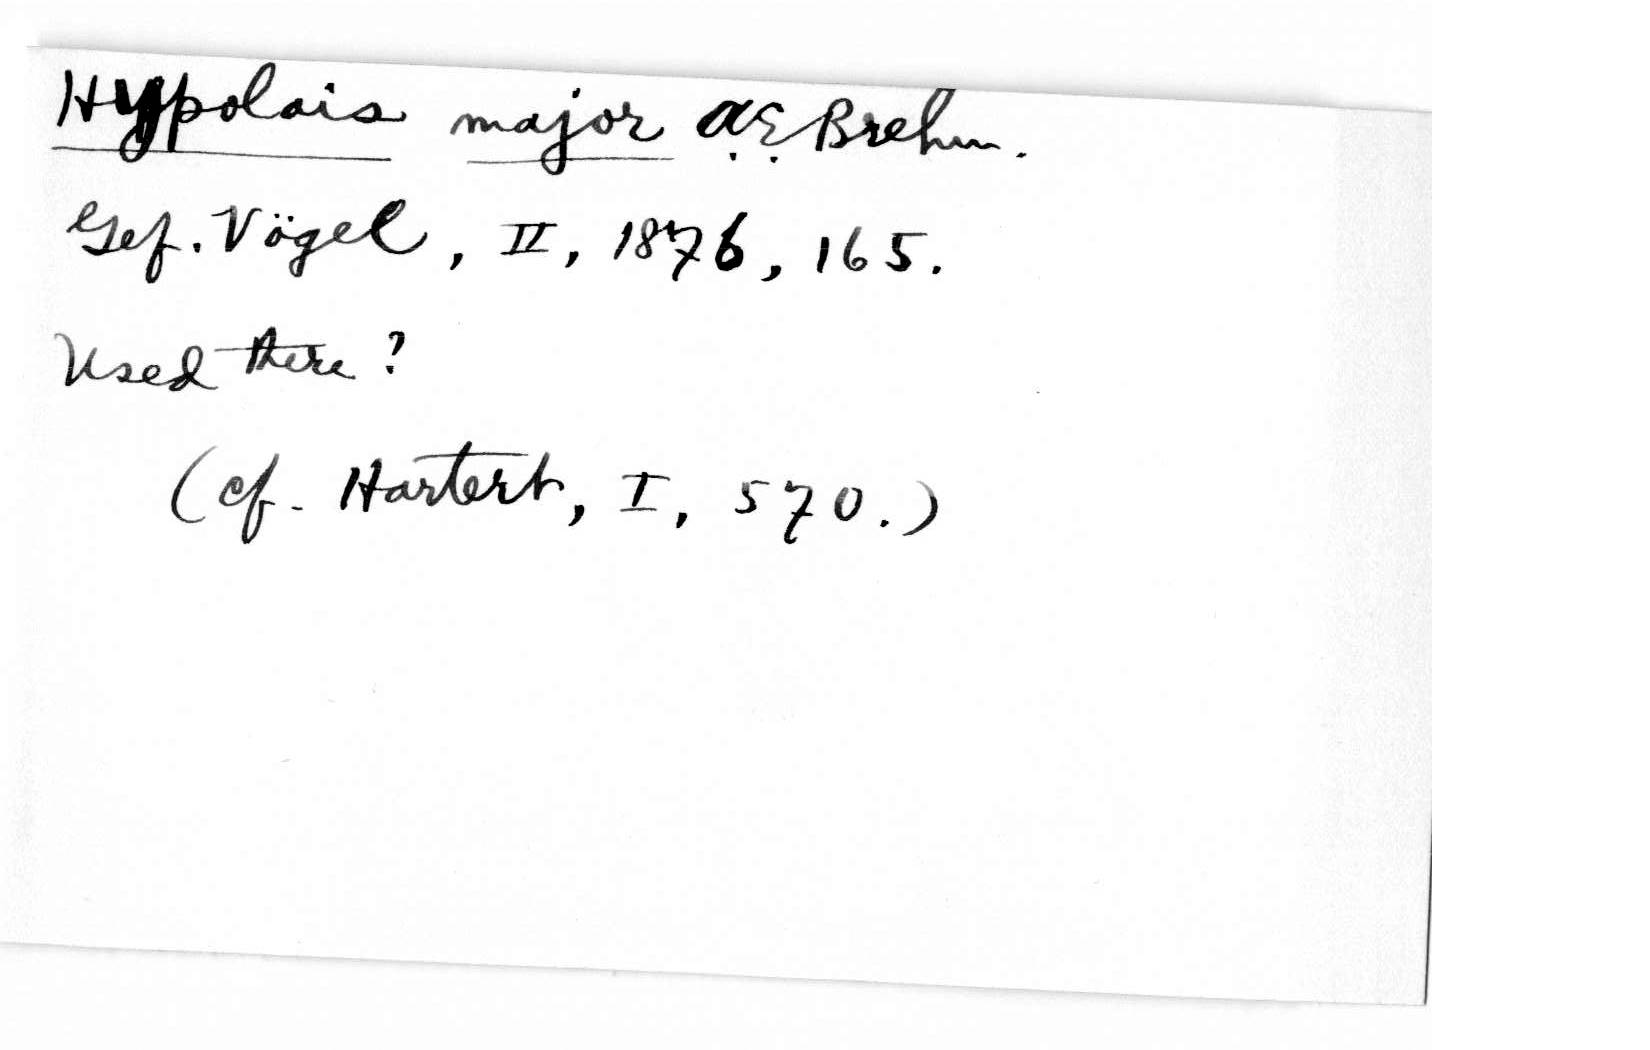 Hypolais major A.E. Brehm.
Gef. Vögel, II, 1876, 165.
Used there?
(cf. Hartert, I, 570.)